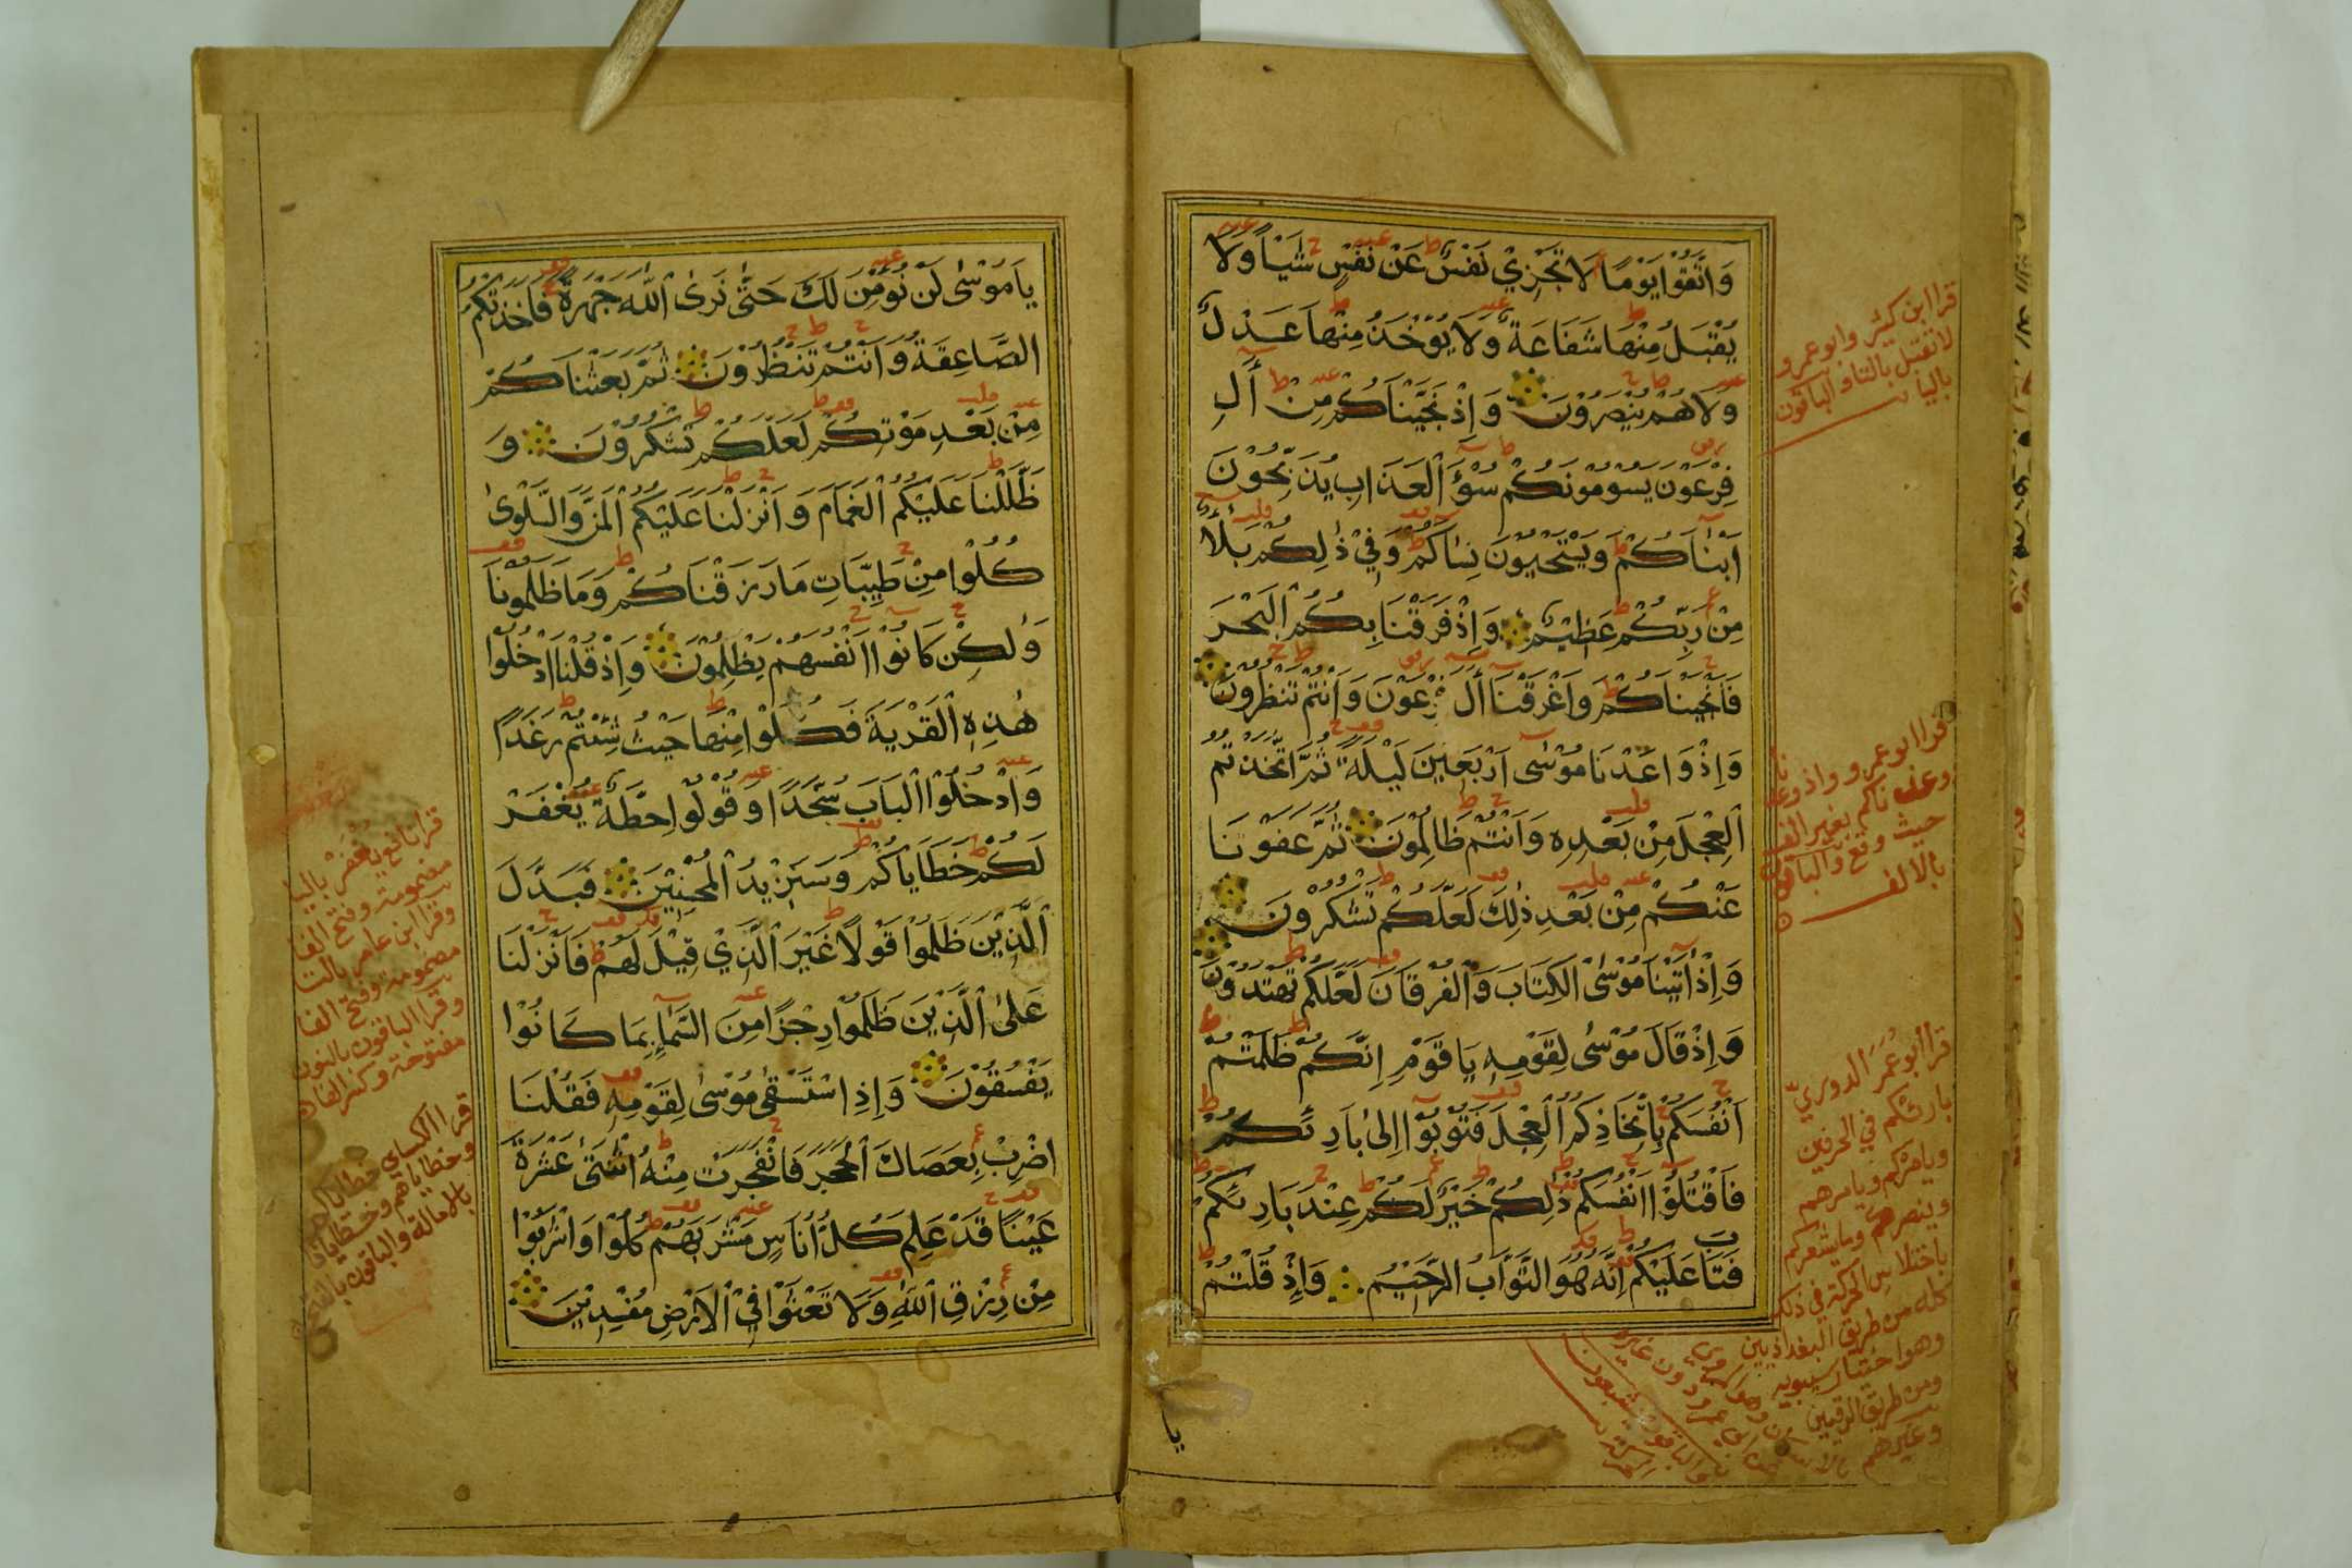 وَاتَّقُوْا يَوْمًا لَا تَجْزِيْ نَفْسٌ عَنْ نَفْسٍ شَيْاً وَلَا
يُقْبَلُ مِنْهَا شَفَاعَةٌ وَلَا يُوْخَذُ مِنْهَا عَدْلٌ
وَلَا هُمْ يُنْصَرُوْنَ وَاِذْ نَجَّيْنَاكُمْ مِنْ اٰلِ
فِرْعَوْنَ يَسُومُونَكُمْ سُوْءَ الْعَذَابِ يُذَبِّحُوْنَ
اَبْنَاكُمْ وَيَسْتَحْيُوْنَ نِسَاكُمْ وَفِيْ ذٰلِكُمْ بَلَاٌ
مِنْ رَبِّكُمْ عَظِيْمٌ وَاِذْ فَرَقْنَا بِكُمُ الْبَحْرَ
فَاَنْجَيْنَاكُمْ وَاَغْرَقْنَا اٰلَ فِرْعَوْنَ وَاَنْتُمْ تَنْظُرُوْنَ
وَاِذْ وَاعَدْنَا مُوْسٰى اَرْبَعِيْنَ لَيْلَةً ثُمَّ اتَّخَذْتُمُ
الْعِجْلَ مِنْ بَعْدِهِ وَاَنْتُمْ ظَالِمُوْنَ ثُمَّ عَفَوْنَا
عَنْكُمْ مِنْ بَعْدِ ذٰلِكَ لَعَلَّكُمْ تَشْكُرُوْنَ
وَاِذْ اٰتَيْنَا مُوْسَى الْكِتَابَ وَالْفُرْقَانَ لَعَلَّكُمْ تَهْتَدُوْنَ
وَاِذْ قَالَ مُوْسٰى لِقَوْمِهِ يَا قَوْمِ اِنَّكُمْ ظَلَمْتُمْ
اَنْفُسَكُمْ بِاتِّخَاذِكُمُ الْعِجْلَ فَتُوْبُوْا اِلٰى بَارِئِكُمْ
فَاقْتُلُوْا اَنْفُسَكُمْ ذٰلِكُمْ خَيْرٌ لَكُمْ عِنْدَ بَارِئِكُمْ
فَتَابَ عَلَيْكُمْ اِنَّهُ هُوَ التَّوَّابُ الرَّحِيْمُ وَاِذْ قُلْتُمْ
يا
قرا ابن كثير وابو عمرو
لا تقبل بالتا والباقون
باليا
قرا ابو عمرو واذ وعدنا
وعدناكم بغير الف
حيث وقع والباقون
بالالف
قرا ابو عمر الدوري
بارئكم في الحرفين
ويامركم ويامرهم
وينصركم ويشعركم
باختلاس الحركة في ذلك
كله من طريق البغداديين
وهو اختيار سيبويه
ومن طريق الرقيين
وغيرهم
يَا مُوْسٰى لَنْ نُوْمِنَ لَكَ حَتّٰى نَرَى اللّٰهَ جَهْرَةً فَاَخَذَتْكُمُ
الصَّاعِقَةُ وَاَنْتُمْ تَنْظُرُوْنَ ثُمَّ بَعَثْنَاكُمْ
مِنْ بَعْدِ مَوْتِكُمْ لَعَلَّكُمْ تَشْكُرُوْنَ وَ
ظَلَّلْنَا عَلَيْكُمُ الْغَمَامَ وَاَنْزَلْنَا عَلَيْكُمُ الْمَنَّ وَالسَّلْوٰى
كُلُوْا مِنْ طَيِّبَاتِ مَا رَزَقْنَاكُمْ وَمَا ظَلَمُوْنَا
وَلٰكِنْ كَانُوْا اَنْفُسَهُمْ يَظْلِمُوْنَ وَاِذْ قُلْنَا ادْخُلُوْا
هٰذِهِ الْقَرْيَةَ فَكُلُوْا مِنْهَا حَيْثُ شِئْتُمْ رَغَدًا
وَادْخُلُوْا الْبَابَ سُجَّدًا وَقُوْلُوْا حِطَّةٌ يُغْفَرْ
لَكُمْ خَطَايَاكُمْ وَسَنَزِيْدُ الْمُحْسِنِيْنَ فَبَدَّلَ
الَّذِيْنَ ظَلَمُوْا قَوْلًا غَيْرَ الَّذِيْ قِيْلَ لَهُمْ فَاَنْزَلْنَا
عَلَى الَّذِيْنَ ظَلَمُوْا رِجْزًا مِنَ السَّمَاءِ بِمَا كَانُوْا
يَفْسُقُوْنَ وَاِذِ اسْتَسْقٰى مُوْسٰى لِقَوْمِهِ فَقُلْنَا
اضْرِبْ بِعَصَاكَ الْحَجَرَ فَانْفَجَرَتْ مِنْهُ اثْنَتَى عَشْرَةَ
عَيْنًا قَدْ عَلِمَ كُلُّ اُنَاسٍ مَشْرَبَهُمْ كُلُوْا وَاشْرَبُوْا
مِنْ رِزْقِ اللّٰهِ وَلَا تَعْثَوْا فِي الْاَرْضِ مُفْسِدِيْنَ
قرا نافع يغفر باليا
مضمومة وفتح الفا
وقرا ابن عامر بالتا
مضمومة وفتح الفا
وقرا الباقون بالنون
مفتوحة وكسر الفا
قرا الكساي خطاياكم
وخطاياهم وخطايانا
بالامالة والباقون بالفتح